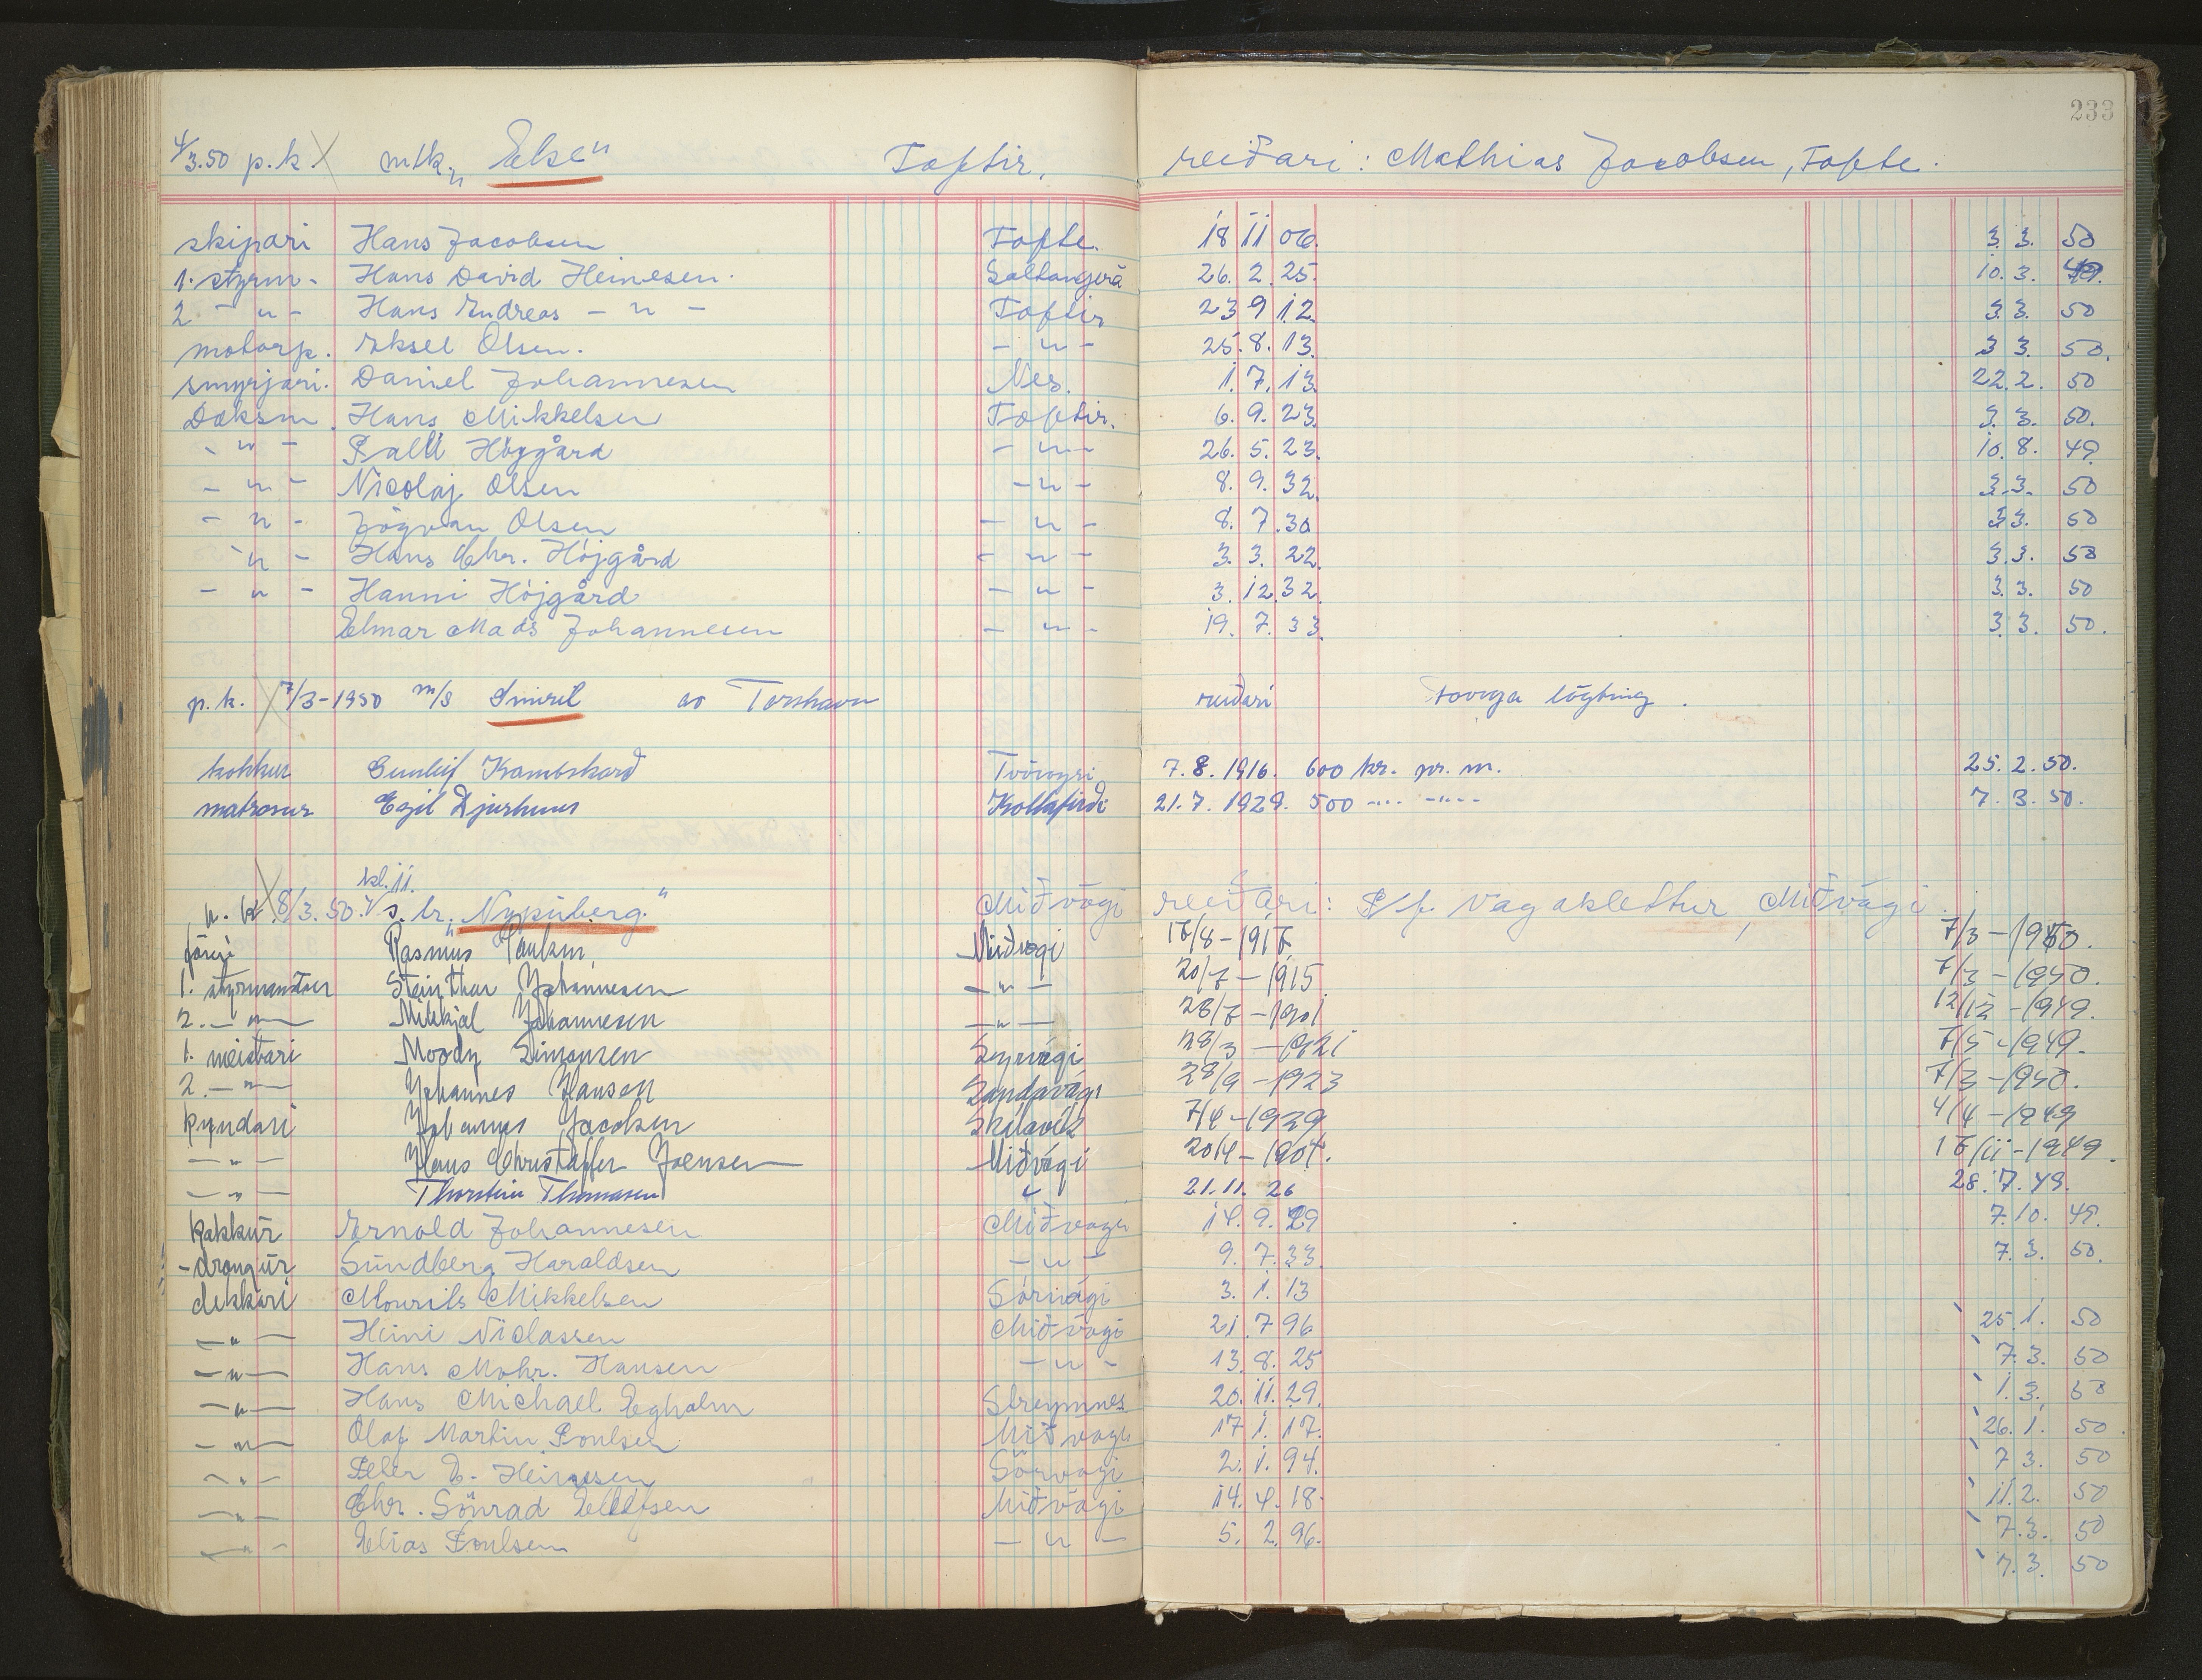 233
4/3.50 p.k. X m/k „Else" Toftir, reiðari: Mathias Jacobsen, Tofte.
skipari Hans Jacobsen Tofte. 18 11 06. 3. 3. 50
1. styrm. Hans David Heinesen. Saltangerá 26. 2. 25. 10. 3. 49.
2 - " - Hans Andreas - " - Toftir 23 9 12. 3. 3. 50
motorp. Aksel Olsen. - " - 25. 8. 13. 3 3. 50.
smyrjari. Daniel Johannesen Nes. 1. 7. 13. 22. 2. 50
Dæksm. Hans Mikkelsen Toftir. 6. 9. 23. 3. 3. 50.
- " - Palli Höjgård - " - 26. 5. 23. 10. 8. 49.
- " - Nicolaj Olsen - " - 8. 9. 32. 3. 3. 50
- " - Jógvan Olsen - " - 8. 7. 30 3 3. 50
- " - Hans Chr. Höjgård - " - 3. 3. 22. 3. 3. 50
- " - Hanni Höjgård - " - 3. 12. 32. 3. 3. 50
Elmar Mads Johannesen - " - 19. 7. 33. 3. 3. 50.
p.k. X 7/3-1950 m/s Smiril av Torshavn reiðari Føroya lögting.
kokkur Gunleif Kambskarð Tvöroyri 7.8.1916. 600 kr. pr. m. 25.2.50.
matrosur Egil Djurhuus Kollafirði 21.7.1929. 500 -"- -"- 7.3.50.
kl. 11.
p.k. X 8/3.50. s.tr. „Nypuberg." Miðvági reiðari: P/f Vagaklettur, Miðvági.
førari Rasmus Poulsen, Miðvági 16/8-1916 7/3-1950.
1. styrmaður Steinthor Johannesen - " - 20/7-1915 7/3-1950.
2. - " - Mikkjal Johannesen - " - 28/7-1901 12/12-1949.
1. meistari Moody Simonsen Sörvági 28/3-1921 7/5-1949.
2. - " - Johannes Hansen Sandavági 28/9-1923 7/3-1950.
kyndari Johannus Jacobsen Skálavík 7/4-1929 4/4-1949
- " - Hans Christoffer Joensen Miðvági 20/4-1907. 16/11-1949.
- " - Thorstein Thomasen " 21.11.26 28.7.49.
kokkur Arnold Johannesen Miðvagi 14. 9. 29 7. 10. 49.
-drongur Sundberg Haraldsen - " - 9. 7. 33. 7. 3. 50.
dekkari Mourits Mikkelsen Sörvági 3. 1. 13
- " - Heini Niclassen Miðvági 21. 7 96 25. 1. 50
- " - Hans Mohr. Hansen - " - 13. 8. 25 7. 3. 50
- " - Hans Michael Egholm Streymnes 20. 11. 29. 1. 3. 50
- " - Olaf Martin Poulsen Miðvagi 17 1. 17. 26. 1. 50.
- " - Peter E. Heinesen Sörvagi 2. 1. 94. 7 3. 50
- " - Chr. Sönrad Ellefsen Miðvági 14. 4. 18. 11. 2. 50
- " - Elias Poulsen - " - 5. 2. 96. 7. 3. 50
7. 3. 50